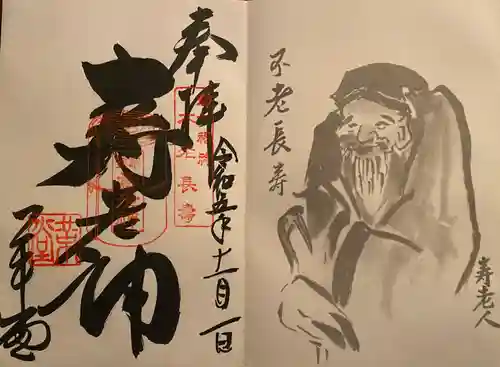 不老長寿
寿老人
奉拝
令和五年十一月一日
不老長壽
寿老神